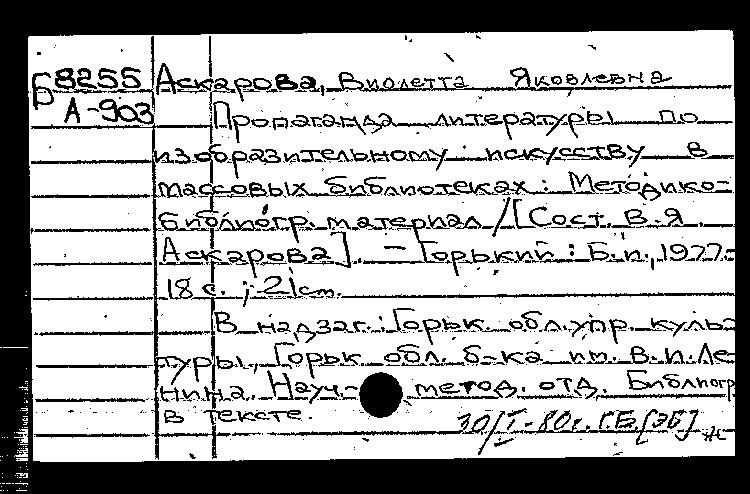 Б 8255 Аскарова, Виолетта Яковлевна
А-903 Пропаганда литературы по
изобразительному искусству в
массовых библиотеках: Методико-
библиогр. материал / [Сост. В.Я.
Аскарова]. — Горький: Б.и., 1977.-
18 с.; 21 см.
В надзаг.: Горьк. обл. упр. куль-
туры, Горьк обл. б-ка им. В.И.Ле-
нина. Науч.- метод. отд. Библиогр
в тексте.
30/I-80г. Г.Б.[ЭБ]